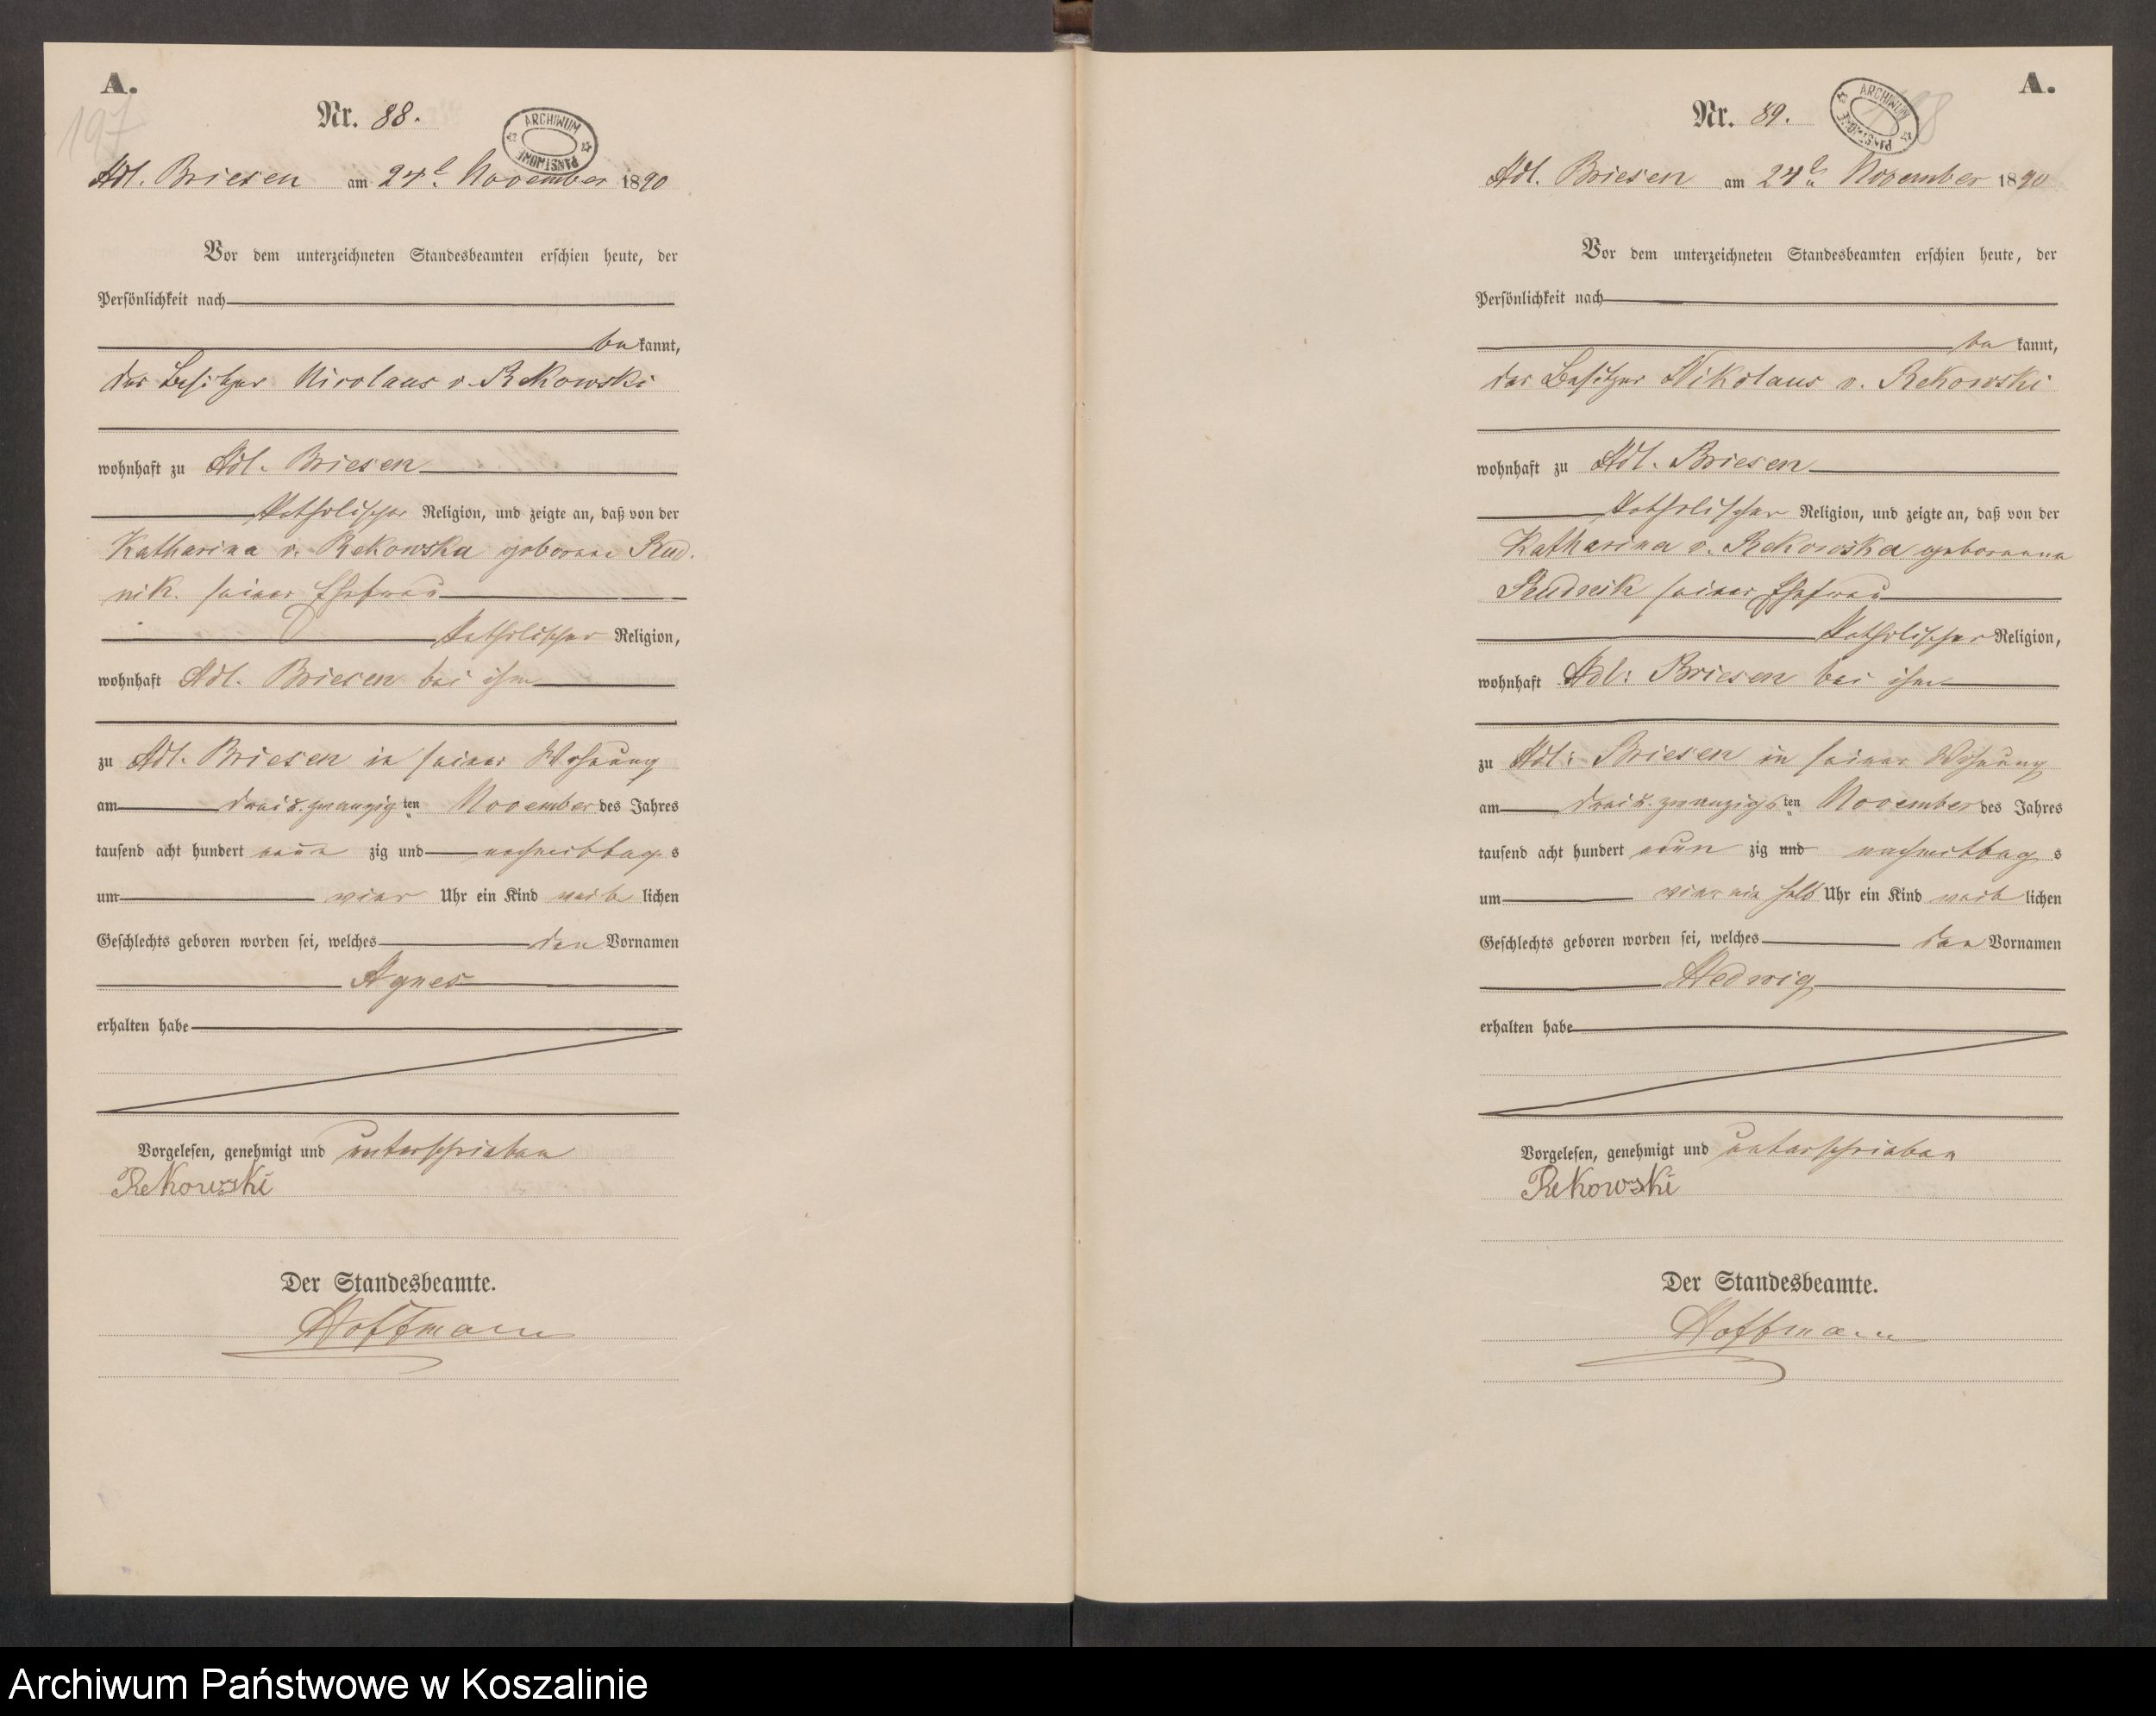 A.
197
Nr. 88.
ARCHIWUM PAŃSTWOWE
Adl. Briesen am 24t. November 1890
Vor dem unterzeichneten Standesbeamten erschien heute, der
Persönlichkeit nach
bekannt,
der Besitzer Nicolaus v. Rekowski
wohnhaft zu Adl. Briesen
katholischer Religion, und zeigte an, daß von der
Katharina v. Rekowska geborene Rud.
nik. seiner Ehefrau
katholischer Religion,
wohnhaft Adl. Briesen bei ihm
zu Adl. Briesen in seiner Wohnung
am drei u. zwanzigten November des Jahres
tausend acht hundert neun zig und nachmittags
um vier Uhr ein Kind weiblichen
Geschlechts geboren worden sei, welches den Vornamen
Agnes
erhalten habe
Vorgelesen, genehmigt und unterschrieben
Rekowski
Der Standesbeamte.
Hoffmann
A.
Nr. 89.
ARCHIWUM PAŃSTWOWE
Adl. Briesen am 24t November 1890
Vor dem unterzeichneten Standesbeamten erschien heute, der
Persönlichkeit nach
bekannt,
der Besitzer Nikolaus v. Rekowski
wohnhaft zu Adl. Briesen
katholischer Religion, und zeigte an, daß von der
Katharina v. Rekowska geborenne
Rudnik seiner Ehefrau
katholischer Religion,
wohnhaft Adl: Briesen bei ihm
zu Adl: Briesen in seiner Wohnung
am drei u. zwanzigsten November des Jahres
tausend acht hundert neun zig und nachmittags
um vier ein halb Uhr ein Kind weiblichen
Geschlechts geboren worden sei, welches den Vornamen
Hedwig
erhalten habe
Vorgelesen, genehmigt und unterschrieben
Rekowski
Der Standesbeamte.
Hoffmann
Archiwum Państwowe w Koszalinie